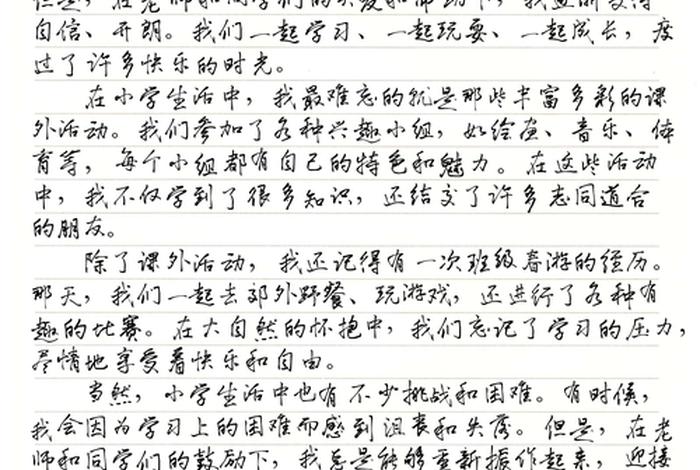 但是，在老师和同学们的关爱和帮助下，我逐渐变得
自信、开朗。我们一起学习、一起玩耍、一起成长，度
过了许多快乐的时光。
在小学生活中，我最难忘的就是那些丰富多彩的课
外活动。我们参加了各种兴趣小组，如绘画、音乐、体
育等，每个小组都有自己的特色和魅力。在这些活动
中，我不仅学到了很多知识，还结交了许多志同道合
的朋友。
除了课外活动，我还记得有一次班级春游的经历。
那天，我们一起去郊外野餐、玩游戏，还进行了各种有
趣的比赛。在大自然的怀抱中，我们忘记了学习的压力，
尽情地享受着快乐和自由。
当然，小学生活中也有不少挑战和困难。有时候，
我会因为学习上的困难而感到沮丧和失落。但是，在老
师和同学们的鼓励下，我总是能够重新振作起来，迎接